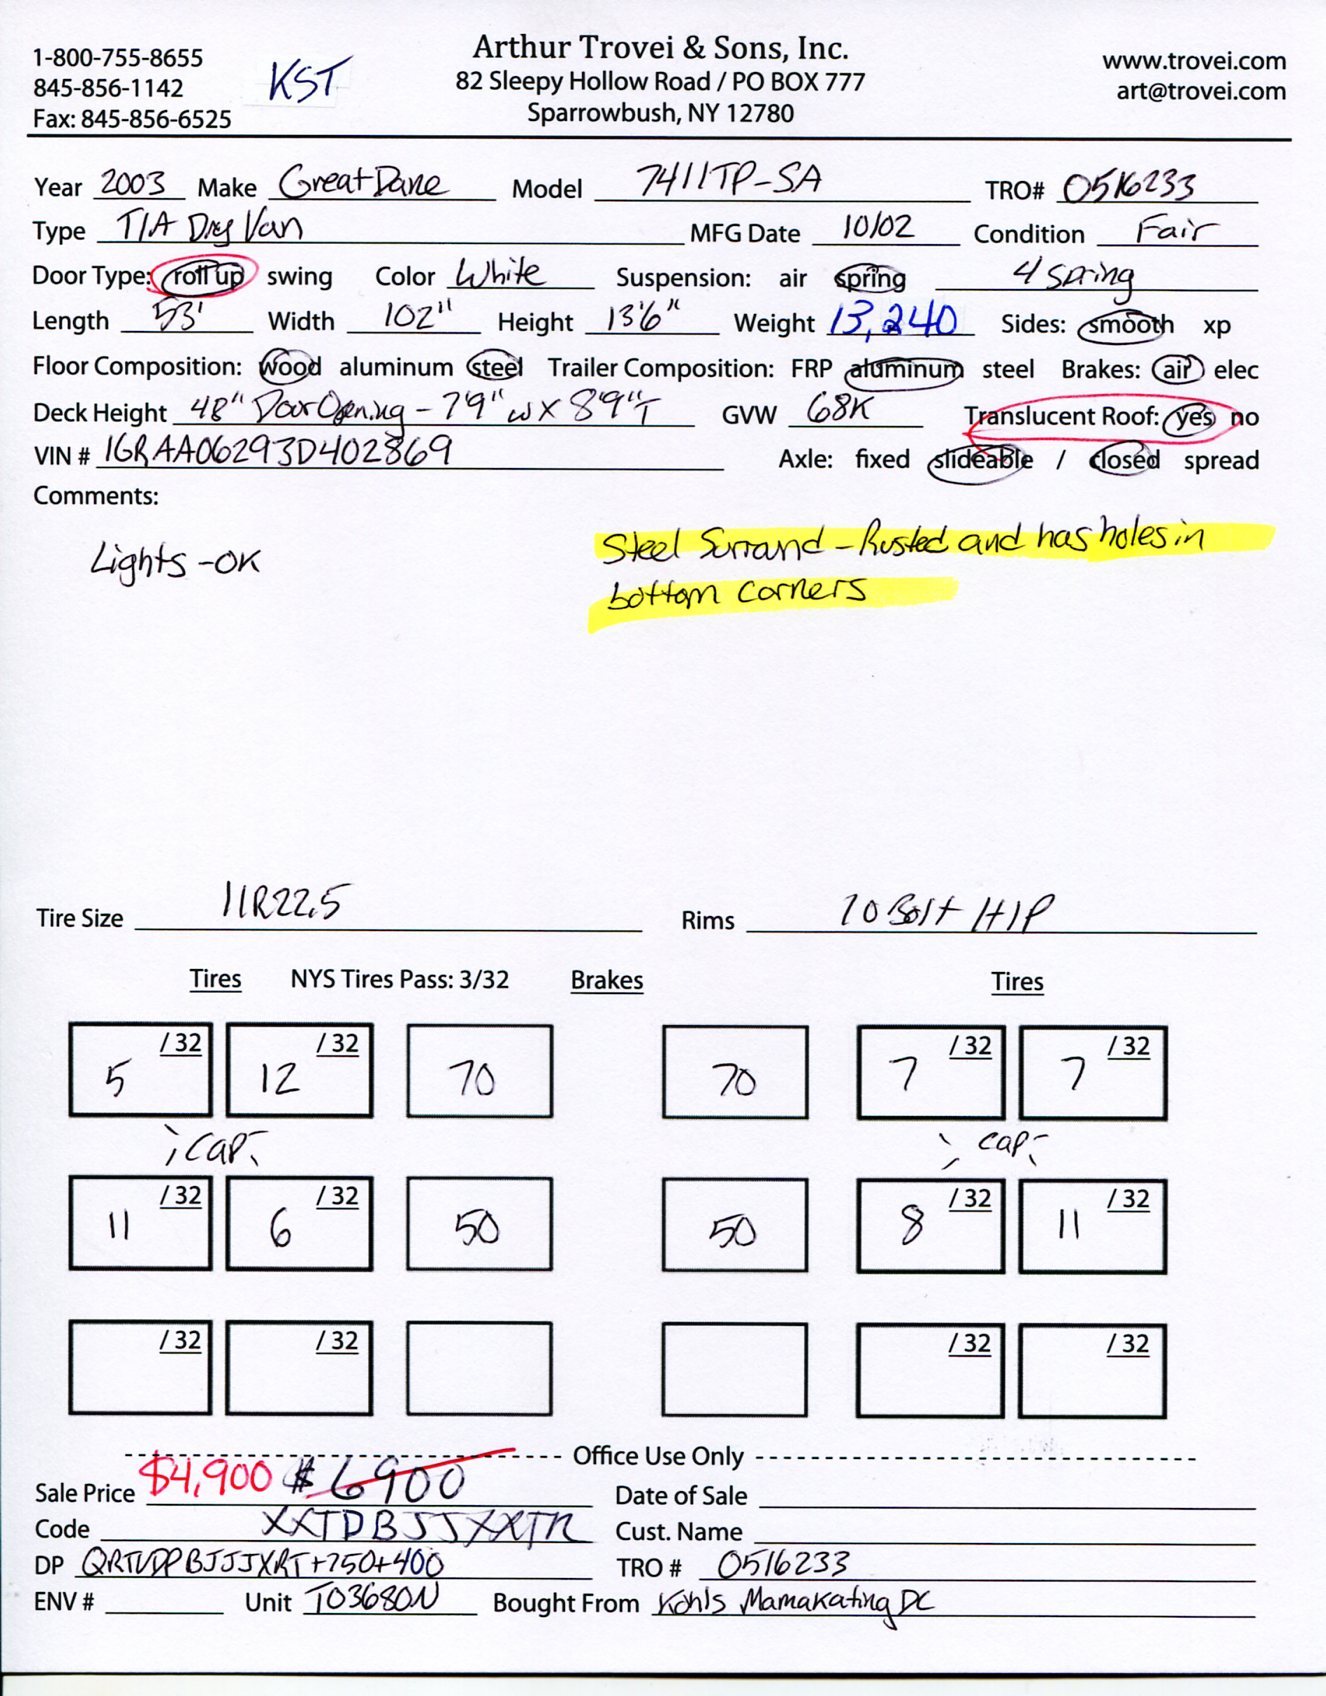 Arthur Trovei & Sons, Inc.
1-800-755-8655 KST 82 Sleepy Hollow Road / PO BOX 777 www.trovei.com
845-856-1142 Sparrowbush, NY 12780 art@trovei.com
Fax: 845-856-6525
Year 2003 Make Great Dane Model 7411TP-SA TRO# 0516233
Type T/A Dry Van MFG Date 10/02 Condition Fair
Door Type: roll up swing Color White Suspension: air spring 4 spring
Length 53' Width 102" Height 13'6" Weight 13,240 Sides: smooth xp
Floor Composition: wood aluminum steel Trailer Composition: FRP aluminum steel Brakes: air elec
Deck Height 48" Door Opening - 79" W X 89" T GVW 68K Translucent Roof: yes no
VIN # 1GRAA06293D402869 Axle: fixed slideable / closed spread
Comments:
Lights - OK
Steel Surrand - Rusted and has holes in
bottom corners
Tire Size 11R22.5 Rims 10 Bolt H/P
Tires NYS Tires Pass: 3/32 Brakes Tires
5 /32 12 /32 70 70 7 /32 7 /32
cap cap
11 /32 6 /32 50 50 8 /32 11 /32
/32 /32 /32 /32
Office Use Only
Sale Price $4,900 $6900 Date of Sale
Code XXTDBJJXXTR Cust. Name
DP TRO # 0516233
ENV # Unit T03680N Bought From Kohls Mamakating DC